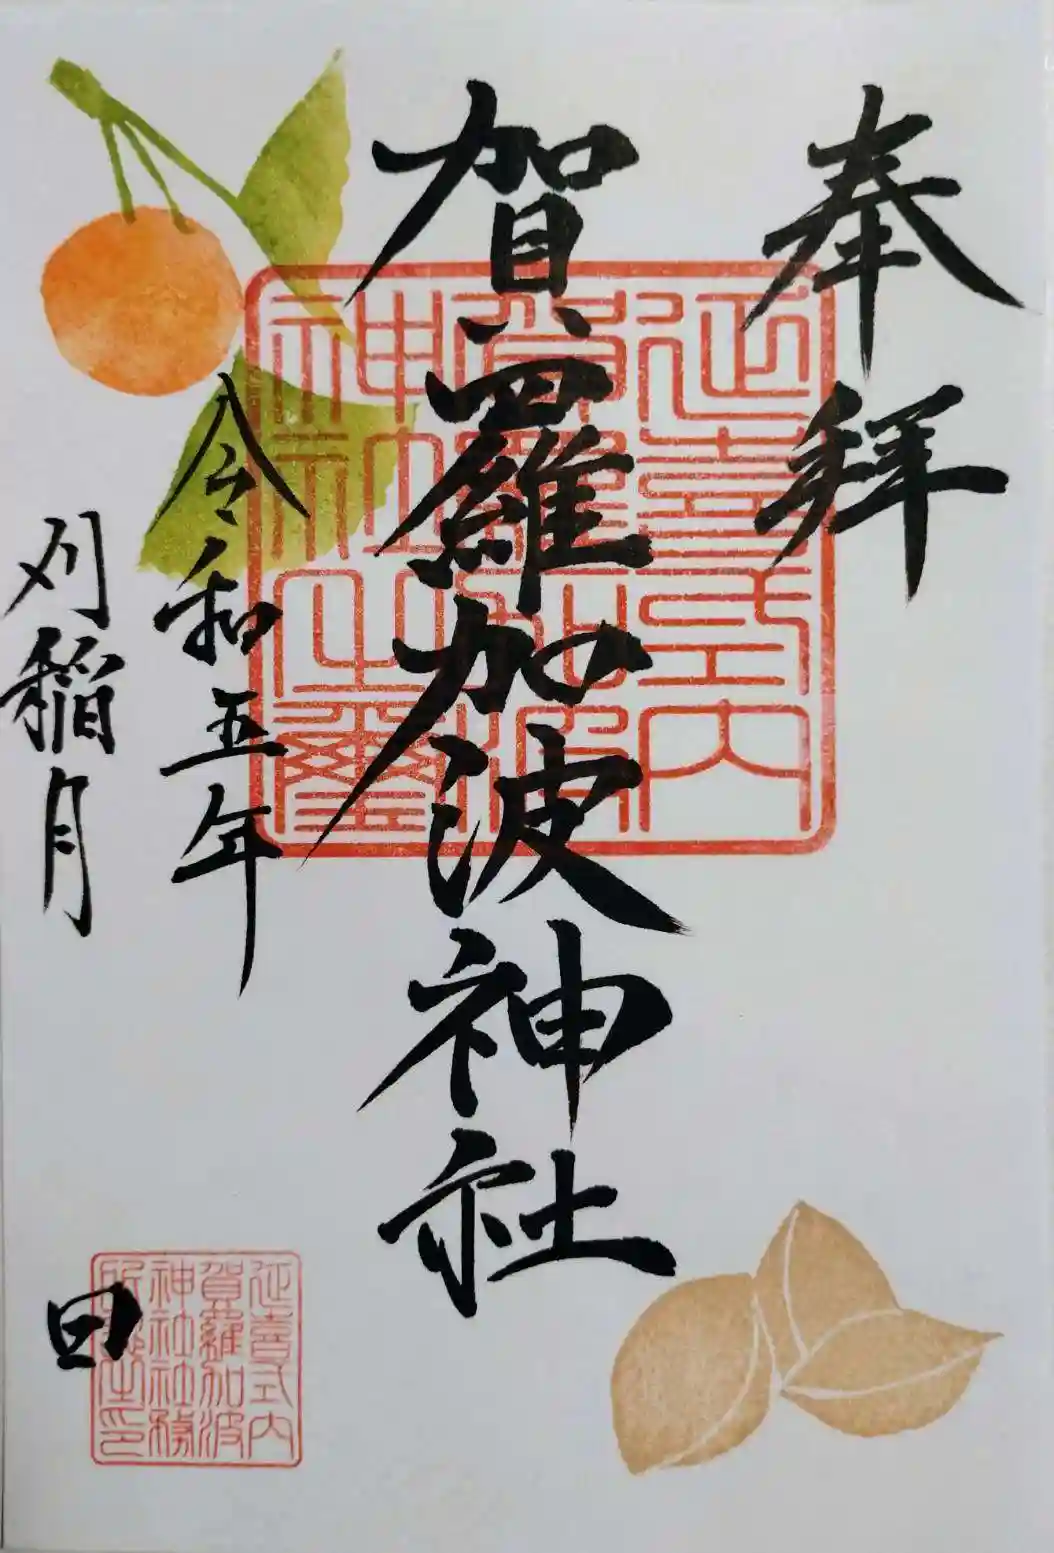 奉拝
賀羅加波神社
令和五年
刈稲月
日
延喜式内
賀羅加波
神社之璽
延喜式内
賀羅加波
神社社務